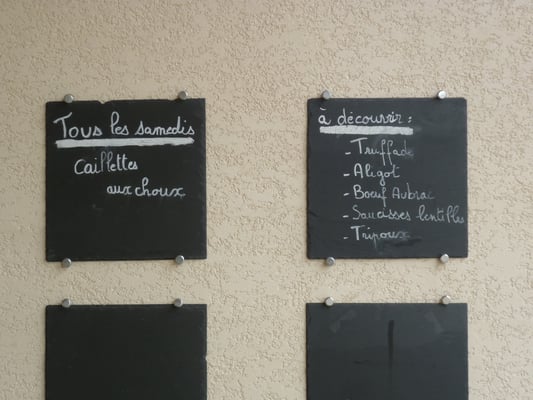 Tous les samedis
Caillettes
aux choux
à découvrir :
- Truffade
- Aligot
- Boeuf Aubrac
- Saucisses lentilles
- Tripoux